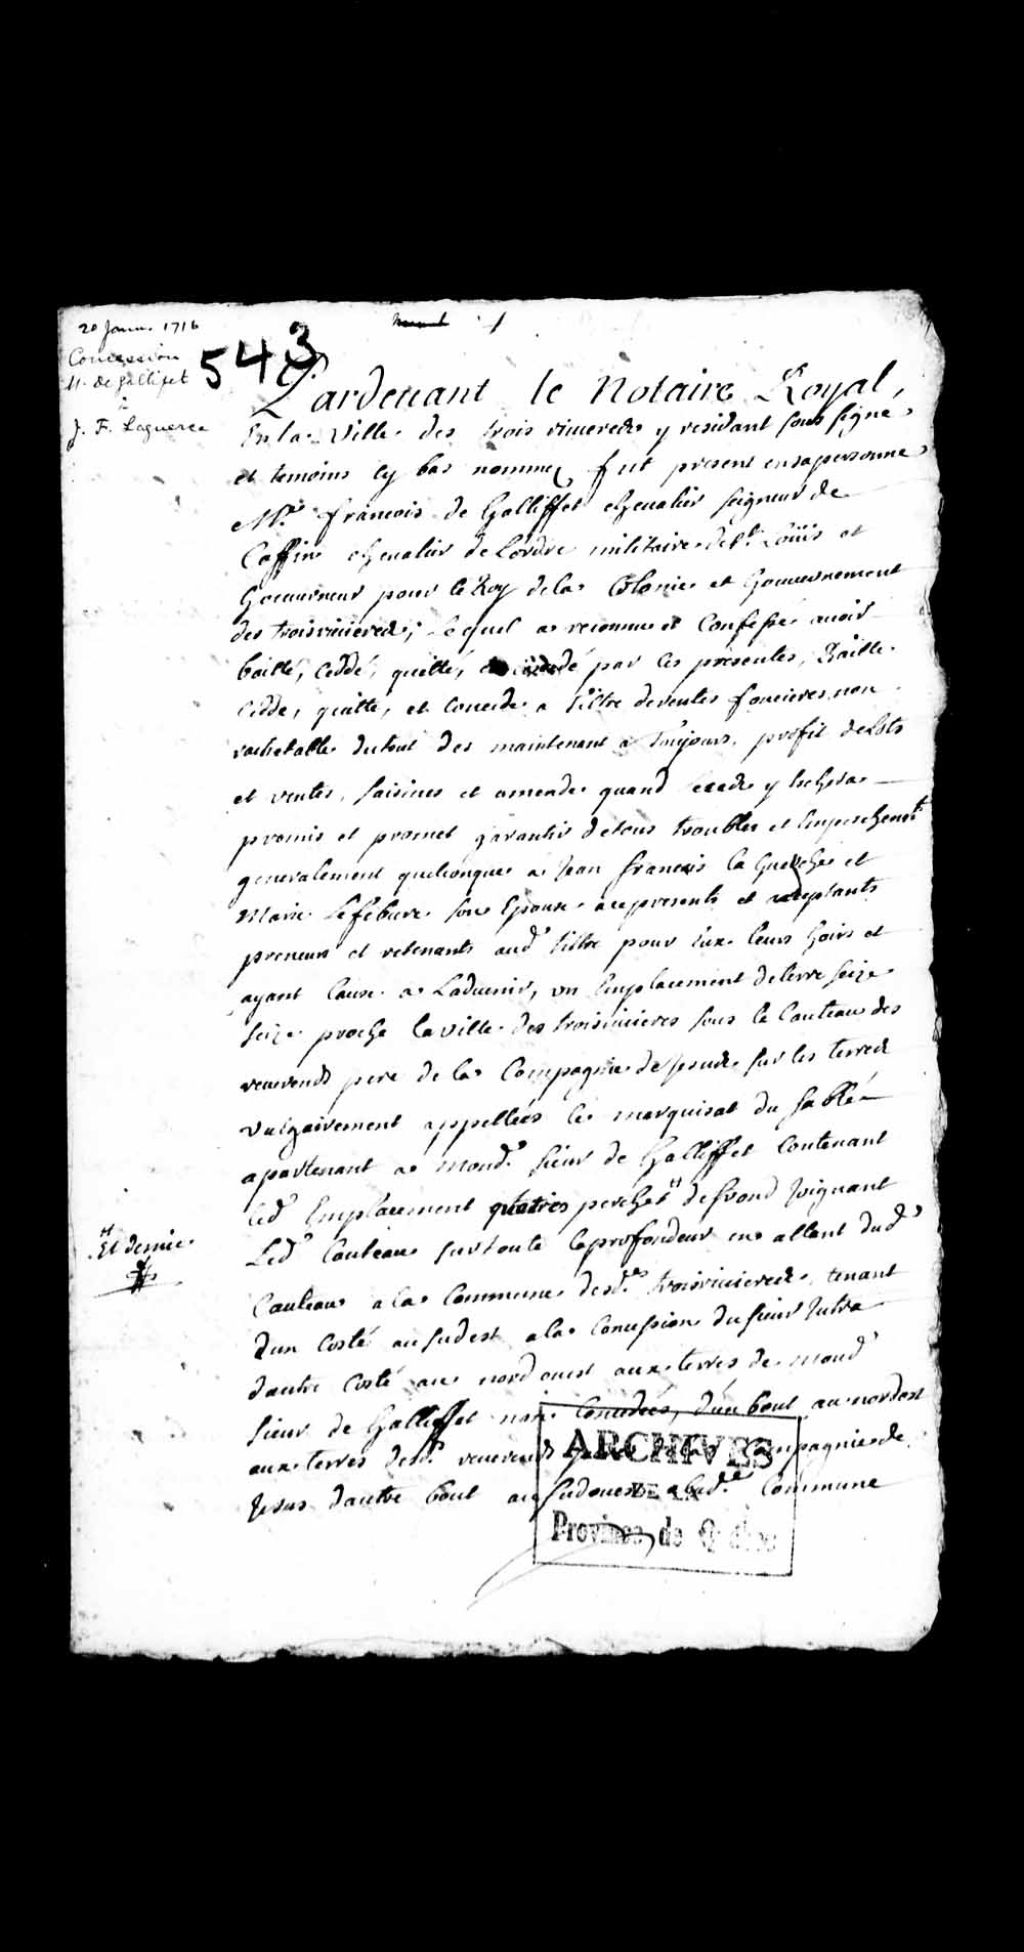 20 Janv. 1716
Concession
M. de Gallifet
à
J. F. Laguerce
543
Pardeuant le Notaire Royal,
En la Ville des trois riuieres y residant sous signé
et temoins cy bas nommez fut present en sa personne
Mre. francois de Galliffet cheualier seigneur de
Caffin cheualier de Lordre militaire de St. Loüis et
Gouuerneur pour le Roy de la Colonie et Gouuernement
des troisriuieres; lequel a reconnu et Confessé auoir
baillé, ceddé, quitté, par ces presentes, Baille
cedde, quitte, et concede a tiltre de rentes foncieres non
rachetable du tout des maintenant a toujours, profit de lots
et ventes, saisines et amende quand y
promis et promet garantir de tous troubles et Empeschements
generalement quelconque a Jean francois la et
Marie Lefebure son Epouse a ce presents et acceptants
preneurs et retenants aud. tiltre pour Eux leurs hoirs et
ayant Cause a Laduenir, un Emplacement de terre seize
seize proche la ville des troisriuieres sous le Couteau des
reuerends pere de la Compagnie de Jesus sur les terres
vulgairement appellées le marquisat du sablé
apartenant a mond. sieur de Galliffet Contenant
led. Emplacement perches de frond Joignant
Et demie
Led. Couteau sur toute la profondeur en allant dud.
Couteau a la Commune desd. troisriuieres, tenant
dun Costé au sudest a la Concession du sieur Jutra
dautre Costé au nord ouest aux terres de mond.
sieur de Galliffet non Concedées, dun bout au nordest
aux terres desd. reuerends Compagnie de
Jesus dautre bout au sudouest a lad. Commune
ARCHIVES
DE LA
Province de Québec